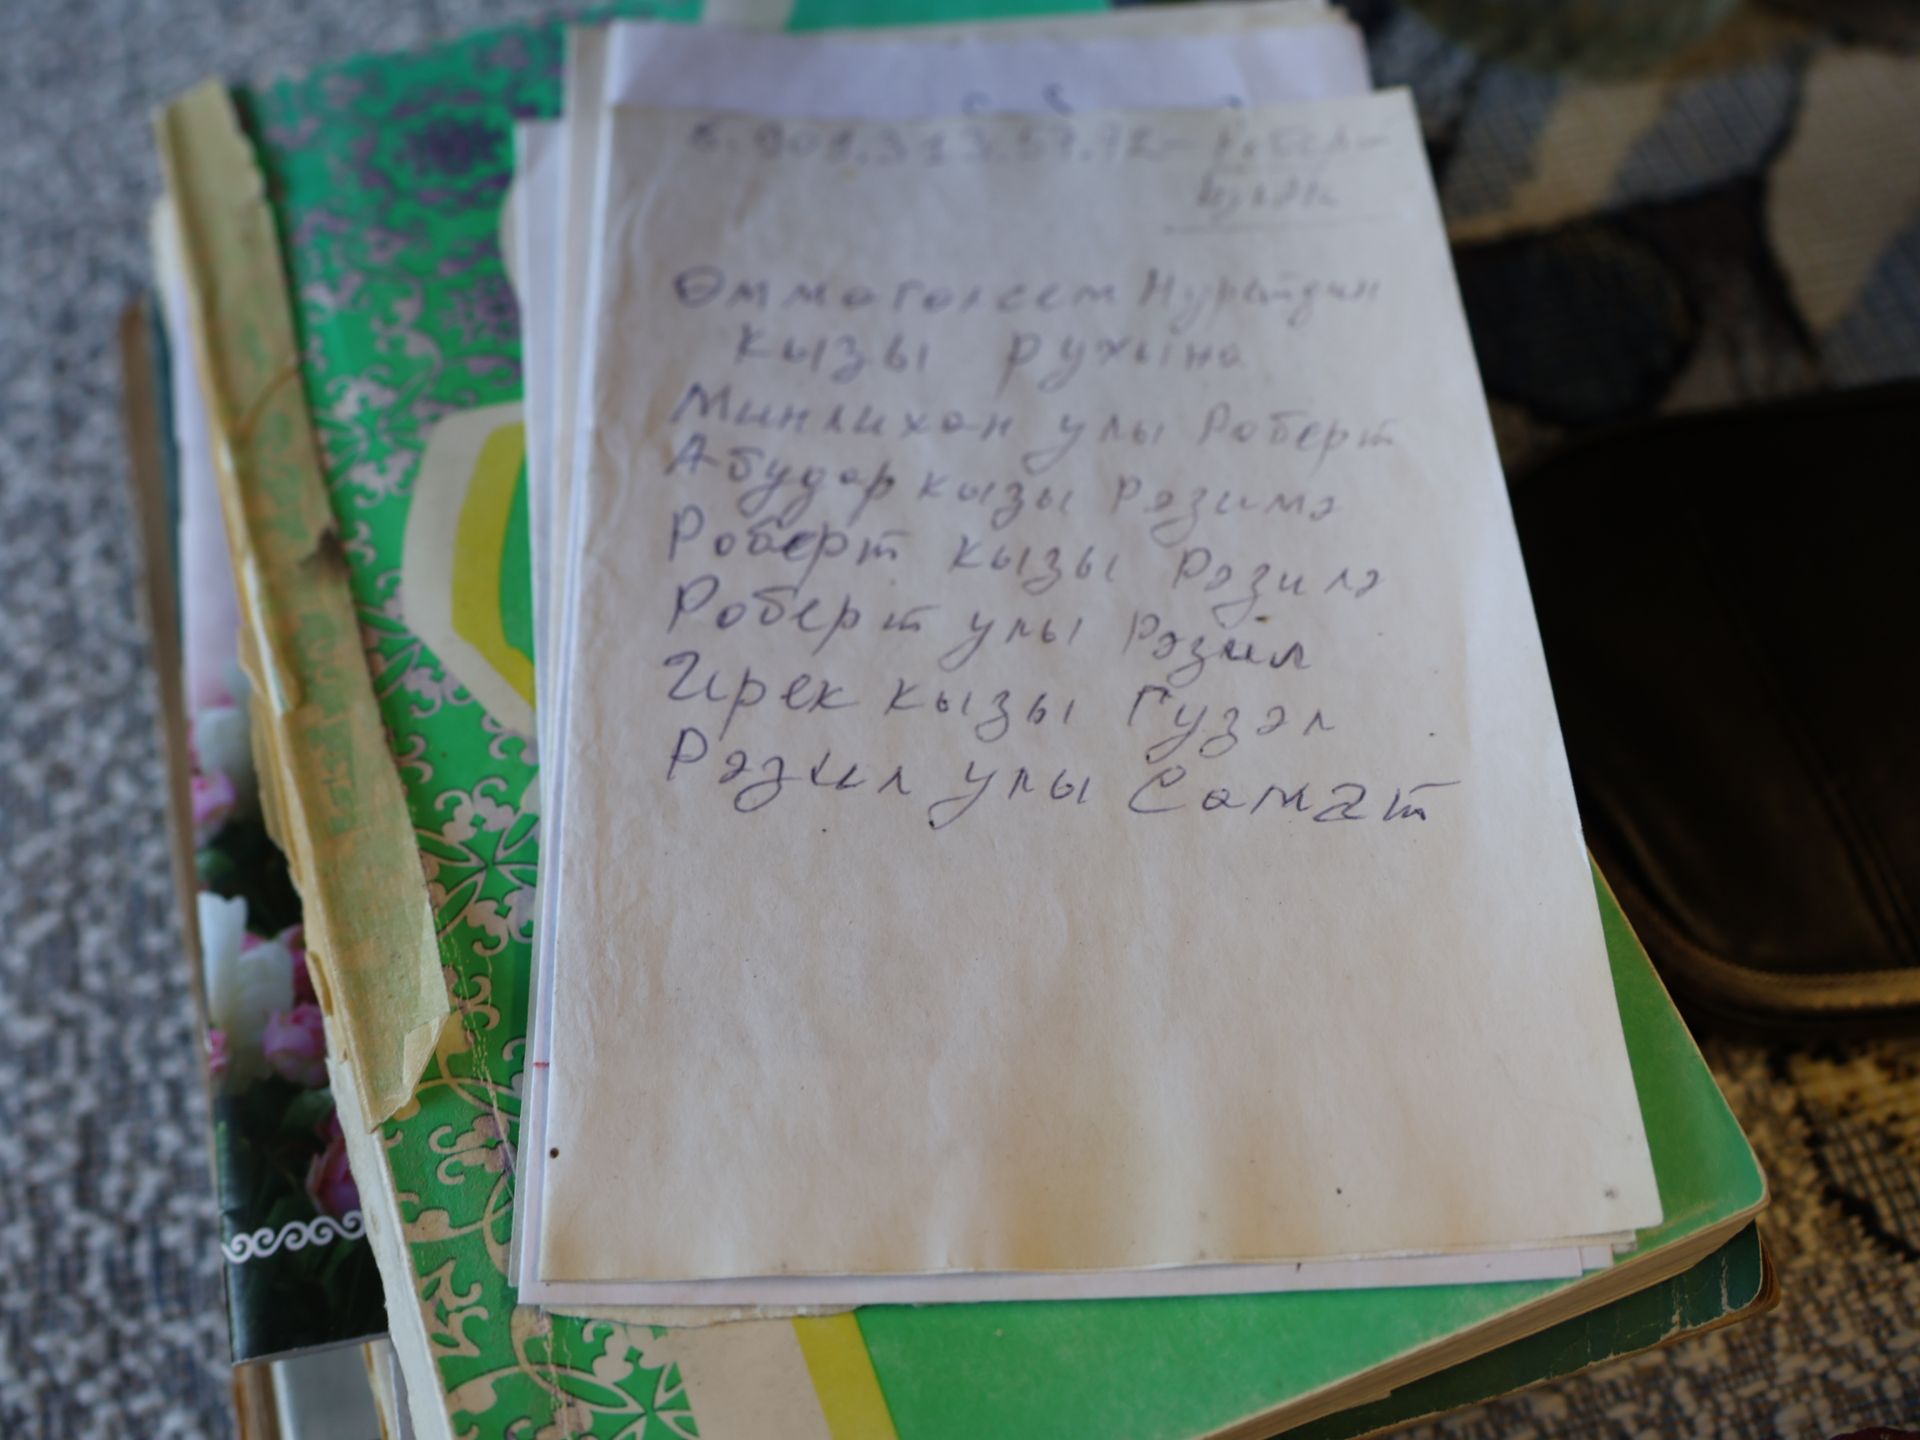 Өммөгөлсем Нуретдин
кызы рухына
Минлихан улы Роберт
Абудар кызы Рәзимә
Роберт кызы Рәзилә
Роберт улы Рәзил
Ирек кызы Гузәл
Рәзил улы Самат